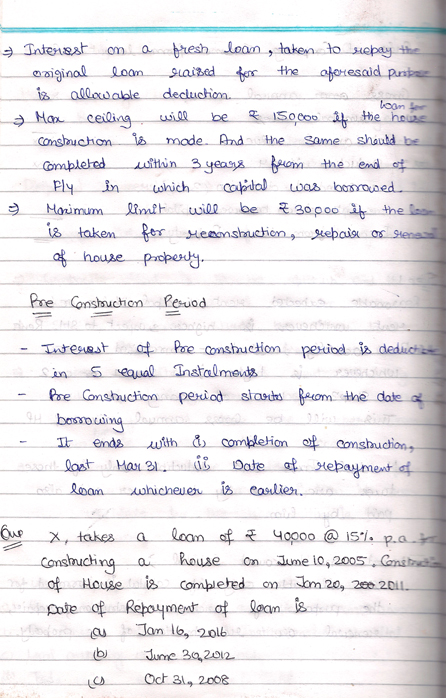 ⇒ Interest on a fresh loan, taken to repay the
original loan raised for the aforesaid purpose
is allowable deduction.
⇒ Max ceiling will be ₹ 150,000 if the house
loan for
construction is made. And the same should be
completed within 3 years from the end of
F/y in which capital was borrowed.
⇒ Maximum limit will be ₹ 30,000 if the loan
is taken for reconstruction, repair or
of house property.
Pre Construction Period
- Interest of Pre construction period is
in 5 equal Instalments
- Pre Construction period starts from the date of
borrowing
- It ends with i) completion of construction,
last Mar 31. ii Date of repayment of
loan whichever is earlier.
Que X, takes a loan of ₹ 40000 @ 15% p.a. for
Constructing a house on June 10, 2005.
of House is completed on Jan 20, 2011.
Date of Repayment of loan is
(a) Jan 16, 2016
(b) June 30, 2012
(c) Oct 31, 2008